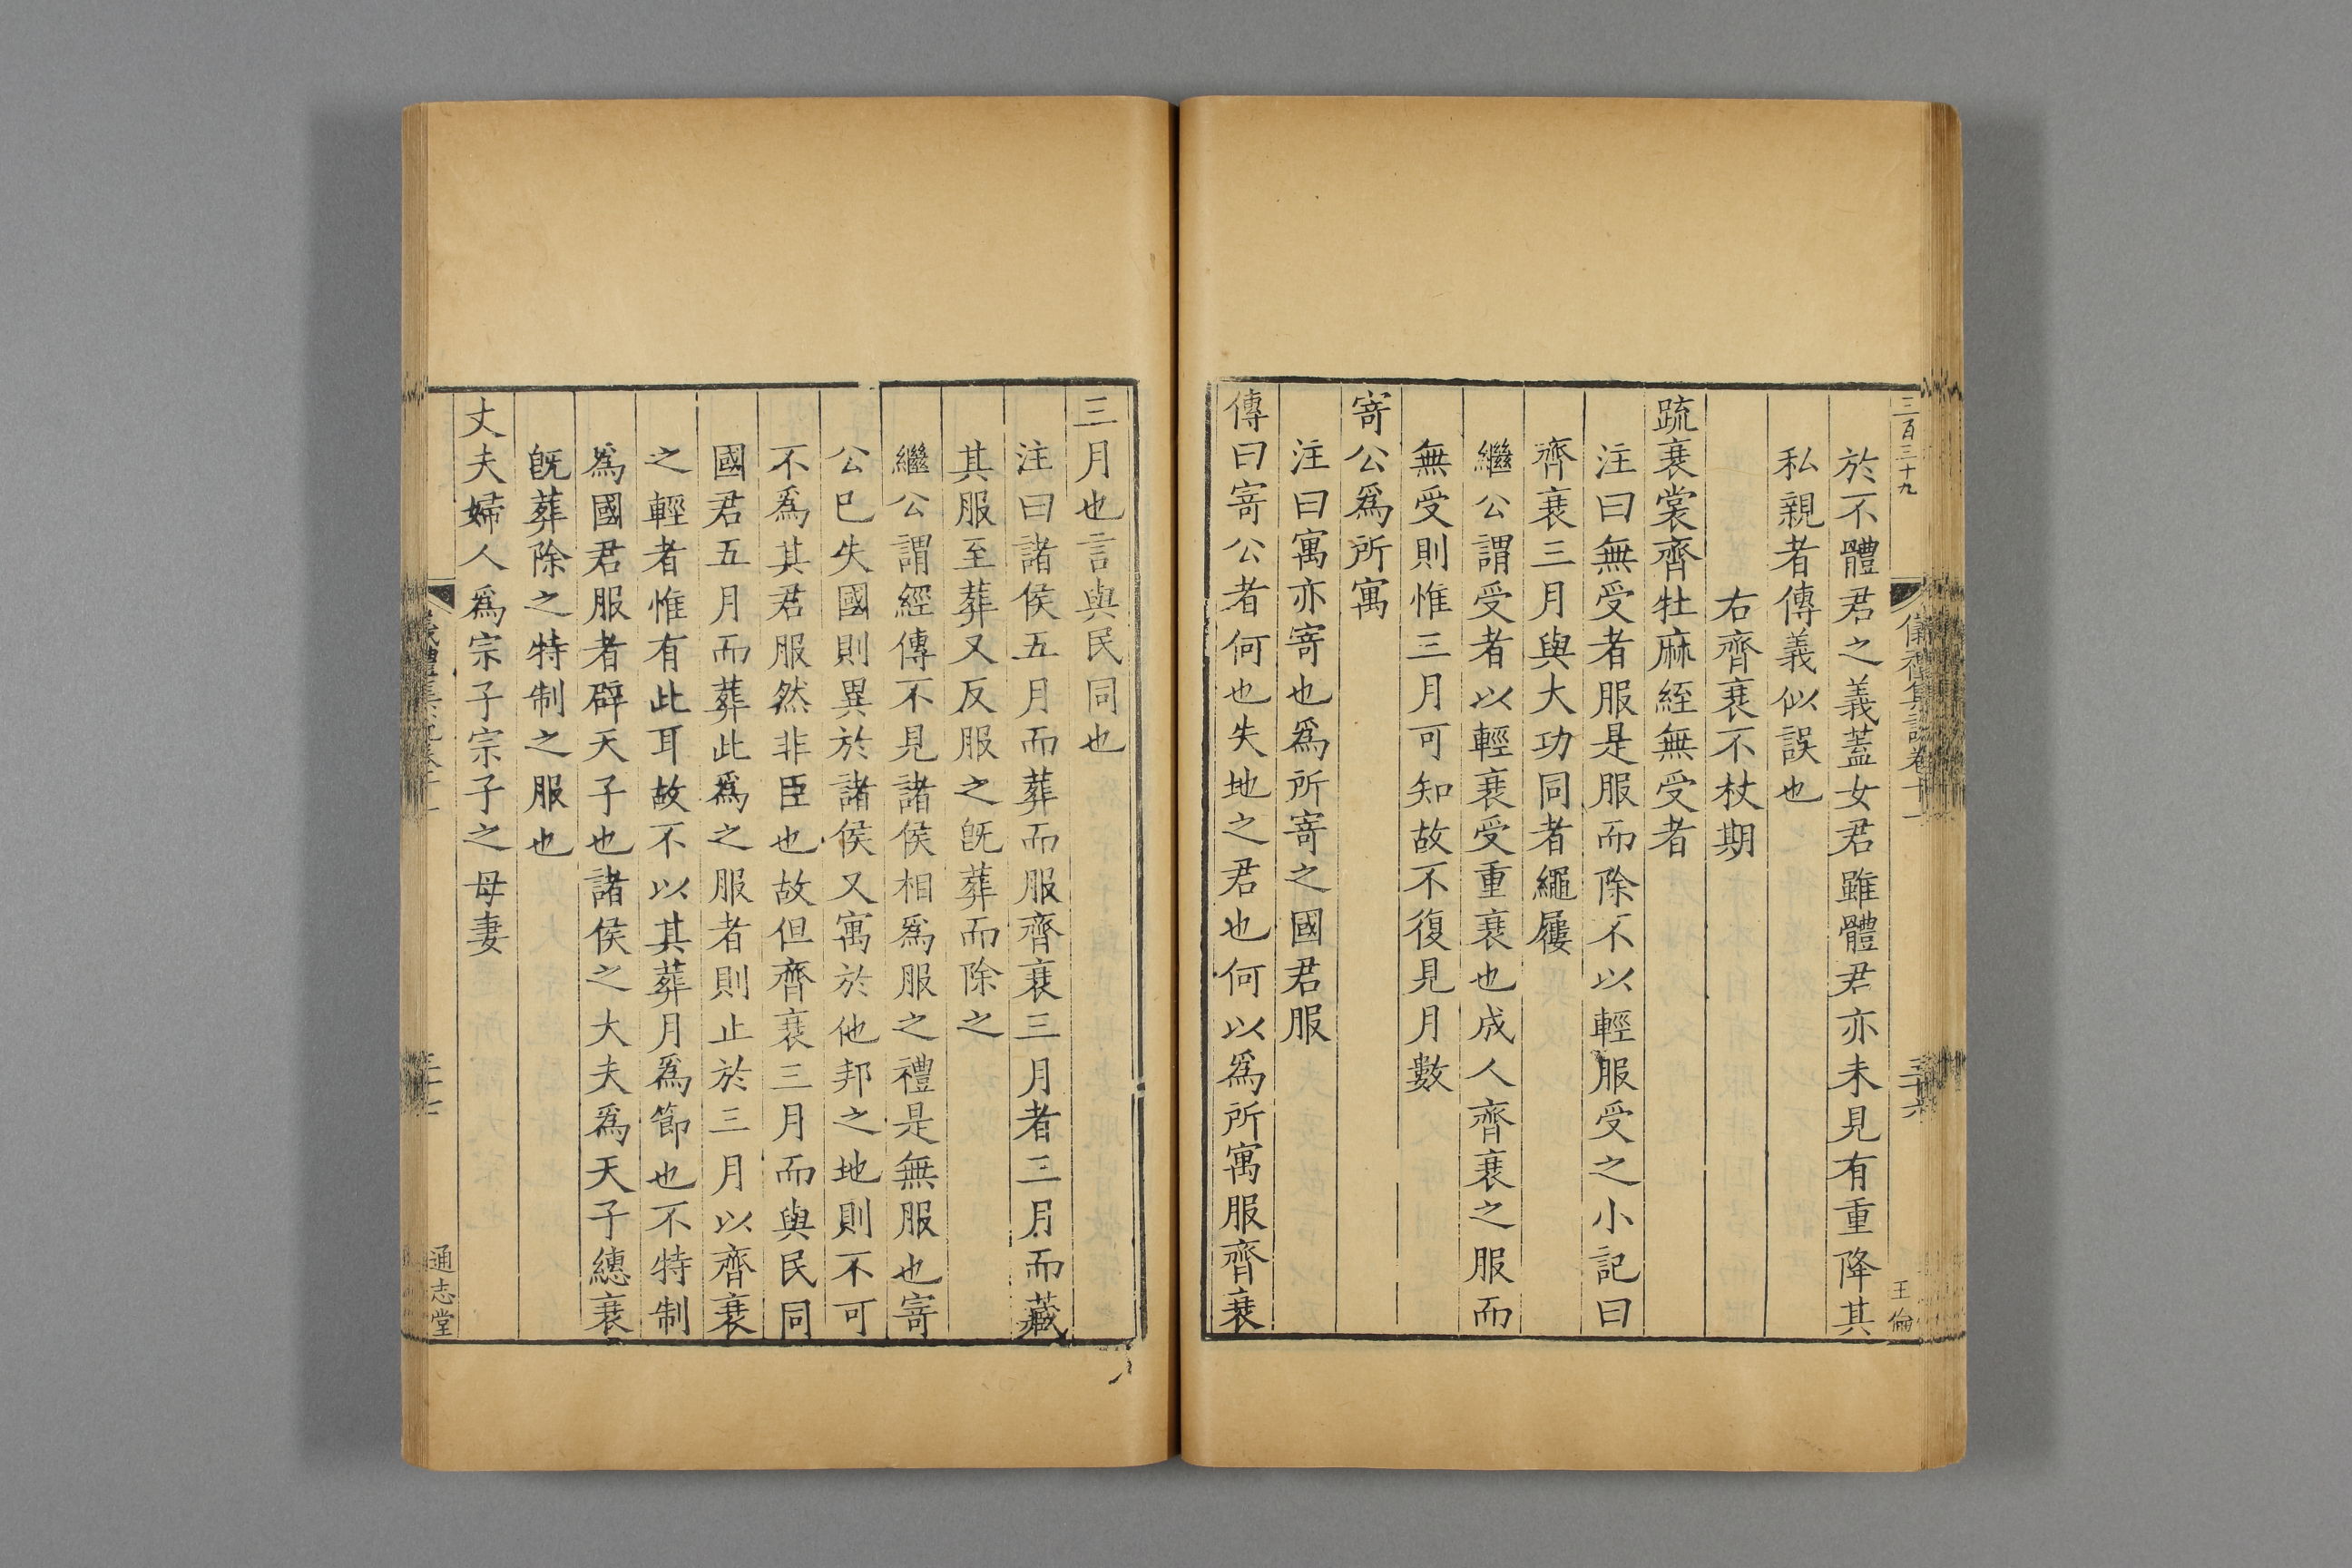 三百三十九
儀禮集説卷十一
三十六
王倫
於不體君之義蓋女君雖體君亦未見有重降其
私親者傳義似誤也
右齊衰不杖期
疏衰裳齊牡麻絰無受者
注曰無受者服是服而除不以輕服受之小記曰
齊衰三月與大功同者繩屨
繼公謂受者以輕衰受重衰也成人齊衰之服而
無受則惟三月可知故不復見月數
寄公爲所寓
注曰寓亦寄也爲所寄之國君服
傳曰寄公者何也失地之君也何以爲所寓服齊衰
三月也言與民同也
注曰諸侯五月而葬而服齊衰三月者三月而藏
其服至葬又反服之旣葬而除之
繼公謂經傳不見諸侯相爲服之禮是無服也寄
公已失國則異於諸侯又寓於他邦之地則不可
不爲其君服然非臣也故但齊衰三月而與民同
國君五月而葬此爲之服者則止於三月以齊衰
之輕者惟有此耳故不以其葬月爲節也不特制
爲國君服者辟天子也諸侯之大夫爲天子繐衰
旣葬除之特制之服也
丈夫婦人爲宗子宗子之母妻
通志堂